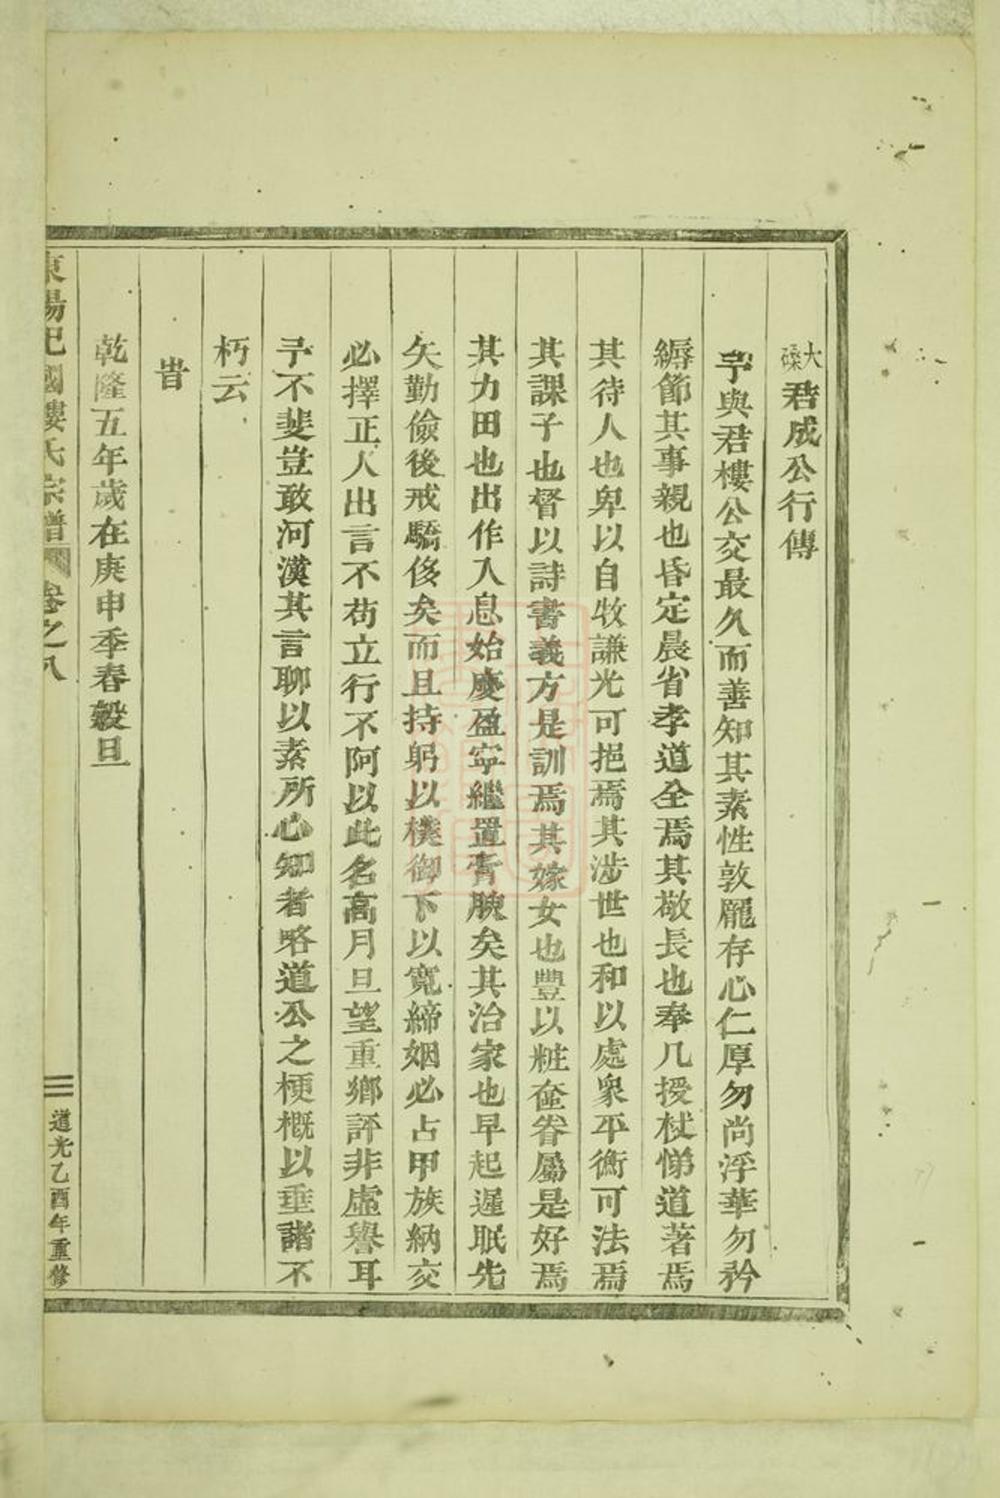 大磉君成公行傳
予與君樓公交最久而善知其素性敦龐存心仁厚勿尚浮華勿矜
縟節其事親也昏定晨省孝道全焉其敬長也奉几授杖悌道著焉
其待人也卑以自牧謙光可挹焉其涉世也和以處衆平衡可法焉
其課子也督以詩書義方是訓焉其嫁女也豐以粧奩眷屬是好焉
其力田也出作入息始慶盈寧繼置膏腴矣其治家也早起遲眠先
矢勤儉後戒驕侈矣而且持躬以樸御下以寬締姻必占甲族納交
必擇正人出言不苟立行不阿以此名高月旦望重鄉評非虛譽耳
予不斐豈敢河漢其言聊以素所心知者略道公之梗概以垂諸不
朽云
旹
乾隆五年歲在庚申季春穀旦
東陽杞國樓氏宗譜 卷之八 三 道光乙酉年重修